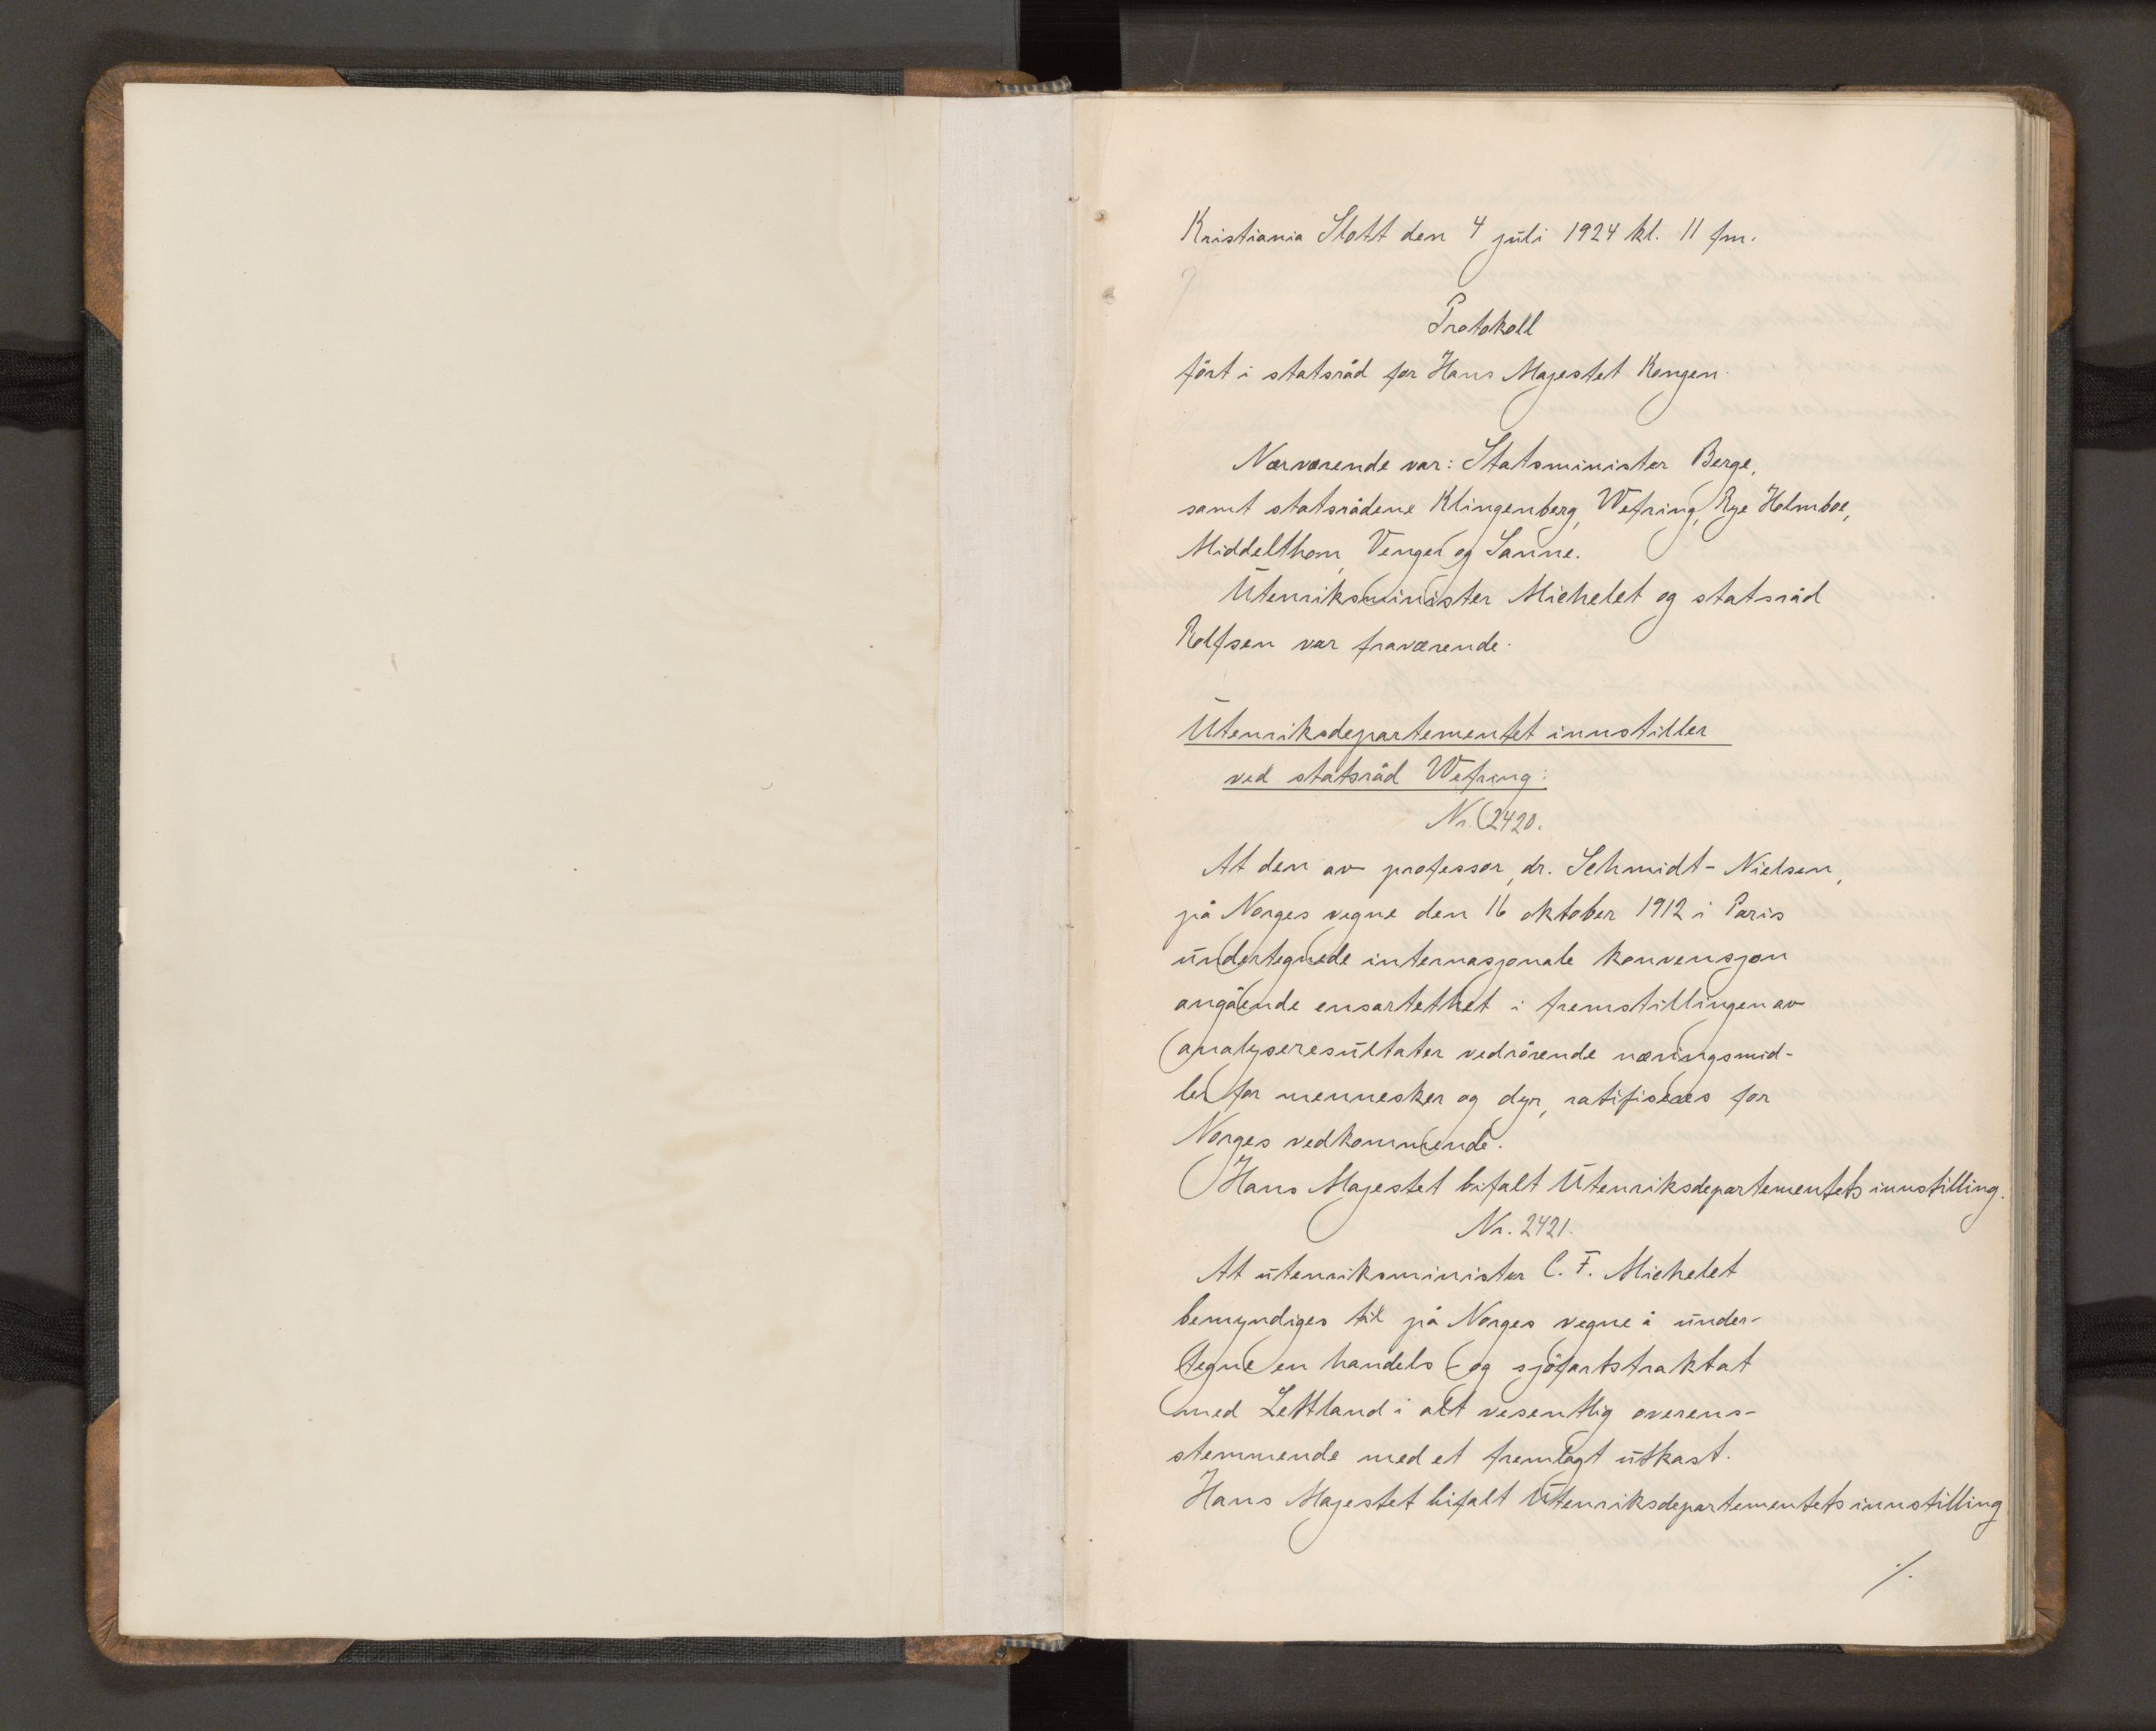 Kristiania Slott den 4 juli 1924 kl. 11 fm.
Protokoll
ført i statsråd for Hans Majestet Kongen.
Nærværende var: Statsminister Berge,
samt statsrådene Klingenberg, Wefring, Rye Holmboe,
Middelthon, Venger og Sanne.
Utenriksminister Michelet og statsråd
Rolfsen var fraværende.
Utenriksdepartementet innstiller
ved statsråd Wefring:
Nr. 2420.
At den av professor, dr. Schmidt-Nielsen,
på Norges vegne den 16 oktober 1912 i Paris
undertegnede internasjonale konvensjon
angående ensartethet i fremstillingen av
analyseresultater vedrørende næringsmid-
ler for mennesker og dyr, ratifiseres for
Norges vedkommende.
Hans Majestet bifalt Utenriksdepartementets innstilling.
Nr. 2421.
At utenriksminister C. F. Michelet
bemyndiges til på Norges vegne å under-
tegne en handels og sjøfartstraktat
med Lettland i alt vesentlig overens-
stemmende med et fremlagt utkast.
Hans Majestet bifalt Utenriksdepartementets innstilling
./.